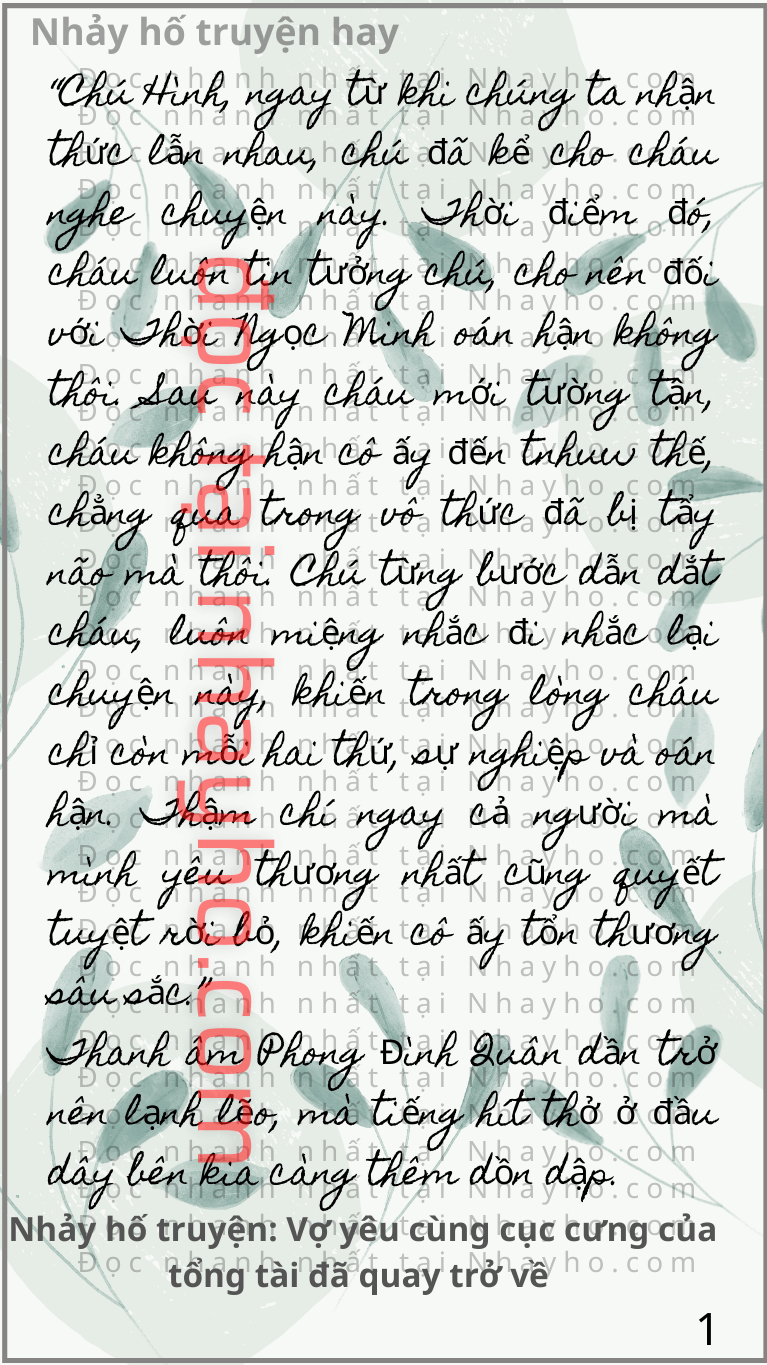 Nhảy hố truyện hay
“Chú Hình, ngay từ khi chúng ta nhận
thức lẫn nhau, chú đã kể cho cháu
nghe chuyện này. Thời điểm đó,
cháu luôn tin tưởng chú, cho nên đối
với Thời Ngọc Minh oán hận không
thôi. Sau này cháu mới tường tận,
cháu không hận cô ấy đến tnhuw thế,
chẳng qua trong vô thức đã bị tẩy
não mà thôi. Chú từng bước dẫn dắt
cháu, luôn miệng nhắc đi nhắc lại
chuyện này, khiến trong lòng cháu
chỉ còn mỗi hai thứ, sự nghiệp và oán
hận. Thậm chí ngay cả người mà
mình yêu thương nhất cũng quyết
tuyệt rời bỏ, khiến cô ấy tổn thương
sâu sắc.”
Thanh âm Phong Đình Quân dần trở
nên lạnh lẽo, mà tiếng hít thở ở đầu
dây bên kia càng thêm dồn dập.
đọc tại nhayho.com
Nhảy hố truyện: Vợ yêu cùng cục cưng của
tổng tài đã quay trở về
1